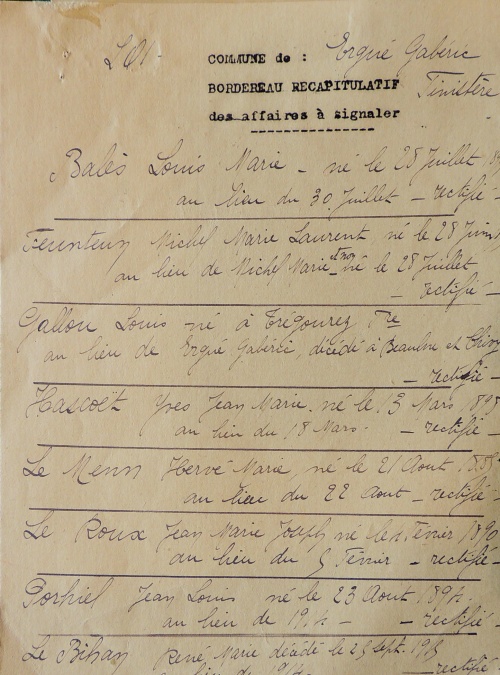 COMMUNE de : Ergué Gabéric
BORDEREAU RECAPITULATIF Finistère
des affaires à signaler
Balès Louis Marie - né le 28 Juillet
au lieu du 30 Juillet - rectifié -
Feunteun Michel Marie Laurent né le 28 Juin
au lieu de Michel Marie et non né le 28 Juillet
- rectifié -
Gallou Louis né à Trégourez Fre
au lieu de Ergué Gabéric, décédé à Beaulne et Chivy
- rectifié -
Hascoët Yves Jean Marie né le 13 Mars 1898
au lieu du 18 Mars. - rectifié -
Le Menn Hervé Marie, né le 21 Août
au lieu du 22 Aout - rectifié -
Le Roux Jean Marie Joseph né le Février 1890
au lieu du 5 Février - rectifié -
Porhiel Jean Louis né le 23 Août
au lieu de - rectifié
Le Bihan René Marie décédé le 25 Sept.
au lieu de rectifié